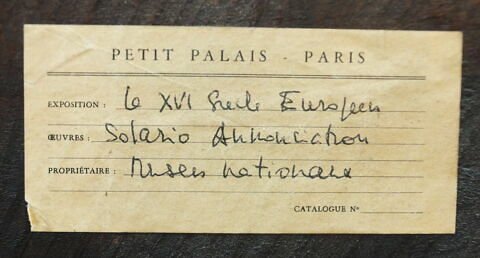 PETIT PALAIS - PARIS
EXPOSITION : Le XVI Siecle Européen
ŒUVRES : Solario Annonciation
PROPRIÉTAIRE : Musées nationaux
CATALOGUE N°